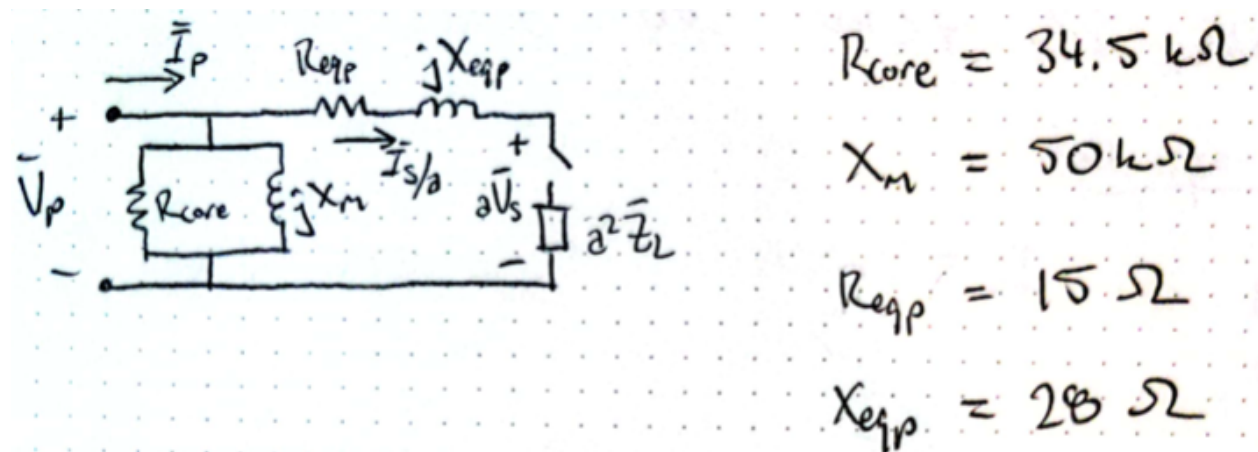 Īp
Reqp jXeqp
+
Īs/a
+
V̄p
Rcore
jXm
aV̄s
a²Z̄L
−
−
Rcore = 34.5 kΩ
Xm = 50 kΩ
Reqp = 15 Ω
Xeqp = 28 Ω